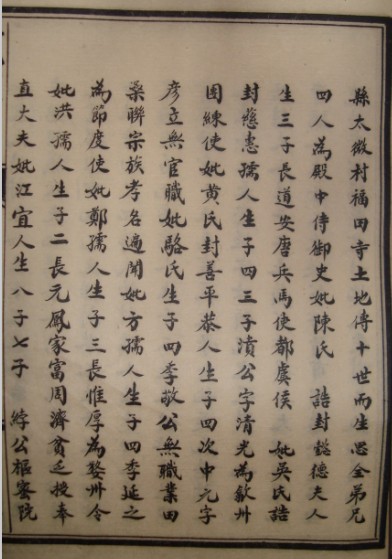 縣太微村福田寺土地傳十世而生思金弟兄
四人為殿中侍御史妣陳氏 誥封懿德夫人
生三子長道安唐兵馬使都虞侯 妣吳氏誥
封慈惠孺人生子四三子濆公字清光為歙州
團練使妣黄氏封善平恭人生子四次中元字
彦立無官職妣駱氏生子四季敬公無職業田
桑聯宗族孝名遍聞妣方孺人生子四季延之
為節度使妣鄭孺人生子三長惟厚為婺州令
妣洪孺人生子二長元鳳家富周濟貧乏授奉
直大夫妣江宜人生八子七子 公樞密院